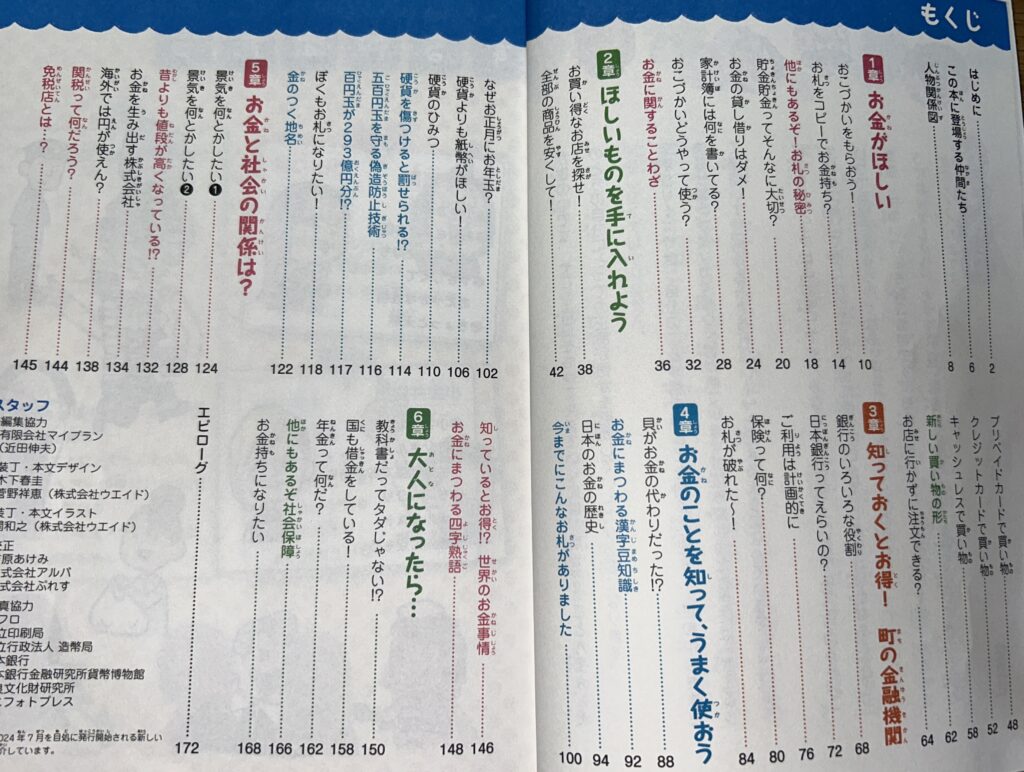 もくじ
はじめに 2
この本に登場する仲間たち 6
人物関係図 8
1章 お金がほしい
おこづかいをもらおう! 10
お札をコピーでお金持ち? 14
他にもあるぞ!お札の秘密 18
貯金貯金ってそんなに大切? 20
お金の貸し借りはダメ! 24
家計簿には何を書いてる? 28
おこづかいどうやって使う? 32
お金に関することわざ 36
2章 ほしいものを手に入れよう
お買い得なお店を探せ! 38
全部の商品を安くして! 42
プリペイドカードで買い物 48
クレジットカードで買い物 52
キャッシュレスで買い物 58
新しい買い物の形 62
お店に行かずに注文できる? 64
3章 知っておくとお得! 町の金融機関
銀行のいろいろな役割 68
日本銀行ってえらいの? 72
ご利用は計画的に 76
保険って何? 80
お札が破れた! 84
4章 お金のことを知って、うまく使おう
貝がお金の代わりだった!? 88
お金にまつわる漢字豆知識 92
日本のお金の歴史 94
今までにこんなお札がありました 100
なぜお正月にお年玉? 102
硬貨よりも紙幣がほしい! 106
硬貨のひみつ 110
硬貨を傷つけると罰せられる!? 114
五百円玉を守る偽造防止技術 116
百円玉が293億円分!? 117
ぼくもお札になりたい! 118
金のつく地名 122
5章 お金と社会の関係は?
景気を何とかしたい❶ 124
景気を何とかしたい❷ 128
昔よりも値段が高くなっている!? 132
お金を生み出す株式会社 134
海外では円が使えん? 138
関税って何だろう? 144
免税店とは…? 145
知っているとお得!? 世界のお金事情 146
お金にまつわる四字熟語 148
6章 大人になったら…
教科書だってタダじゃない!? 150
国も借金をしている! 158
年金って何だ? 162
他にもあるぞ社会保障 166
お金持ちになりたい 168
エピローグ 172
スタッフ
編集協力
有限会社マイプラン
(近田伸夫)
装丁・本文デザイン
木下春圭
菅野祥恵(株式会社ウエイド)
装丁・本文イラスト
和之(株式会社ウエイド)
校正
原あけみ
式会社アルバ
式会社ぷれす
真協力
フロ
立印刷局
立行政法人 造幣局
本銀行
本銀行金融研究所貨幣博物館
良文化財研究所
フォトプレス
024年7月を目処に発行開始される新しい
介しています。